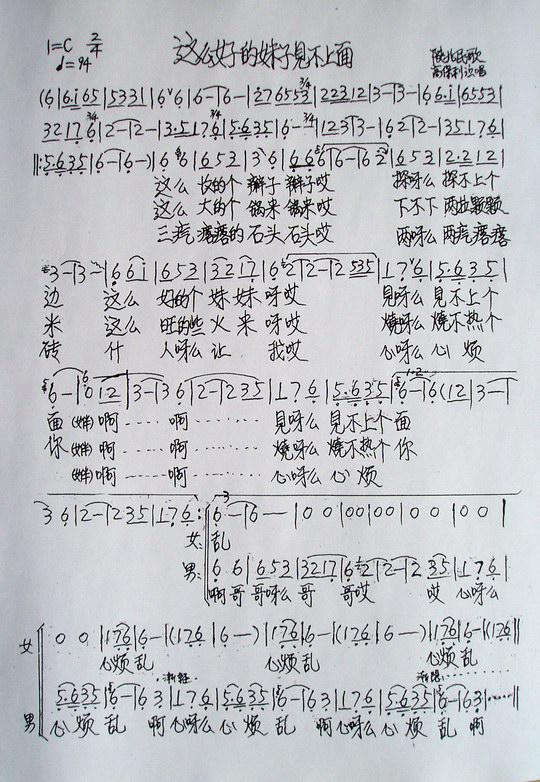 1=C 2/4
这么好的妹子見不上面
♩=94
陕北民歌
(6|6·i 65|5331|6ᵛ6|6-|6-|276553|22312|3-|3-|66·i|6553|
3217 6|2-|2-|3·5176|5·635|6--|123|3-|62|2-|35176|
‖:5·635|6-|6-)|6 6|653|3 6|6 6|6-|6-2|653|2·212|
这么 长的个 辮子 辮子哎 探呀么 探不上个
这么 大的个 锅来 锅来哎 下不下 两粒颗颗
三疙瘩瘩的 石头 石头哎 两呀么 两疙瘩瘩
3-|3-|6 6i|653|3217|6 2|2-|2 535|176|5·635|
边 这么 好的个 妹妹 呀哎 見呀么 見不上个
米 这么 旺的些 火来 呀哎 燒呀么 燒不热个
砖 什 人呀么 让 我哎 心呀么 心 烦
6-|6 0 12|3-|3 6|2-|235|176|5·635|6-|6(12|3-|
面 (妹)啊 …… 啊 …… 見呀么 見不上个 面
你 (妹)啊 …… 啊 …… 燒呀么 燒不热个 你
(妹)啊 …… 啊 …… 心呀么 心 烦
3 6|2-|235|176:|6-|6-|00|00|00|00|00|00|
女: 乱
男: 6 6|653|3217|6 2|2-|2 35|176|
啊哥 哥呀么 哥 哥哎 哎 心呀么
女 0 0|176|6-|(176|6-)|176|6-|(176|6-)|176|6-|(176‖
心烦 乱 心烦 乱 心烦 乱
5·635|6-|6 3|176|5·635|6-|6 3|176|5·635|6-|6 3|……‖
男 心 烦 乱 啊 心呀么 心 烦 乱 啊 心呀么 心 烦 乱 啊